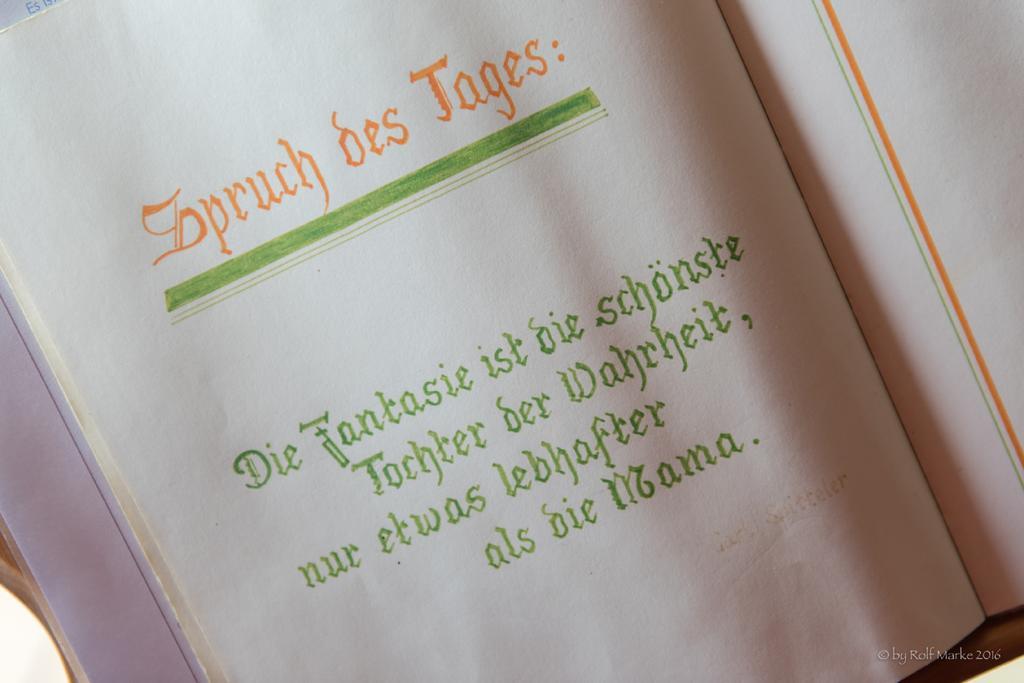 Spruch des Tages:
Die Fantasie ist die schönste
Tochter der Wahrheit,
nur etwas lebhafter
als die Mama.
Carl Spitteler
© by Rolf Marke 2016